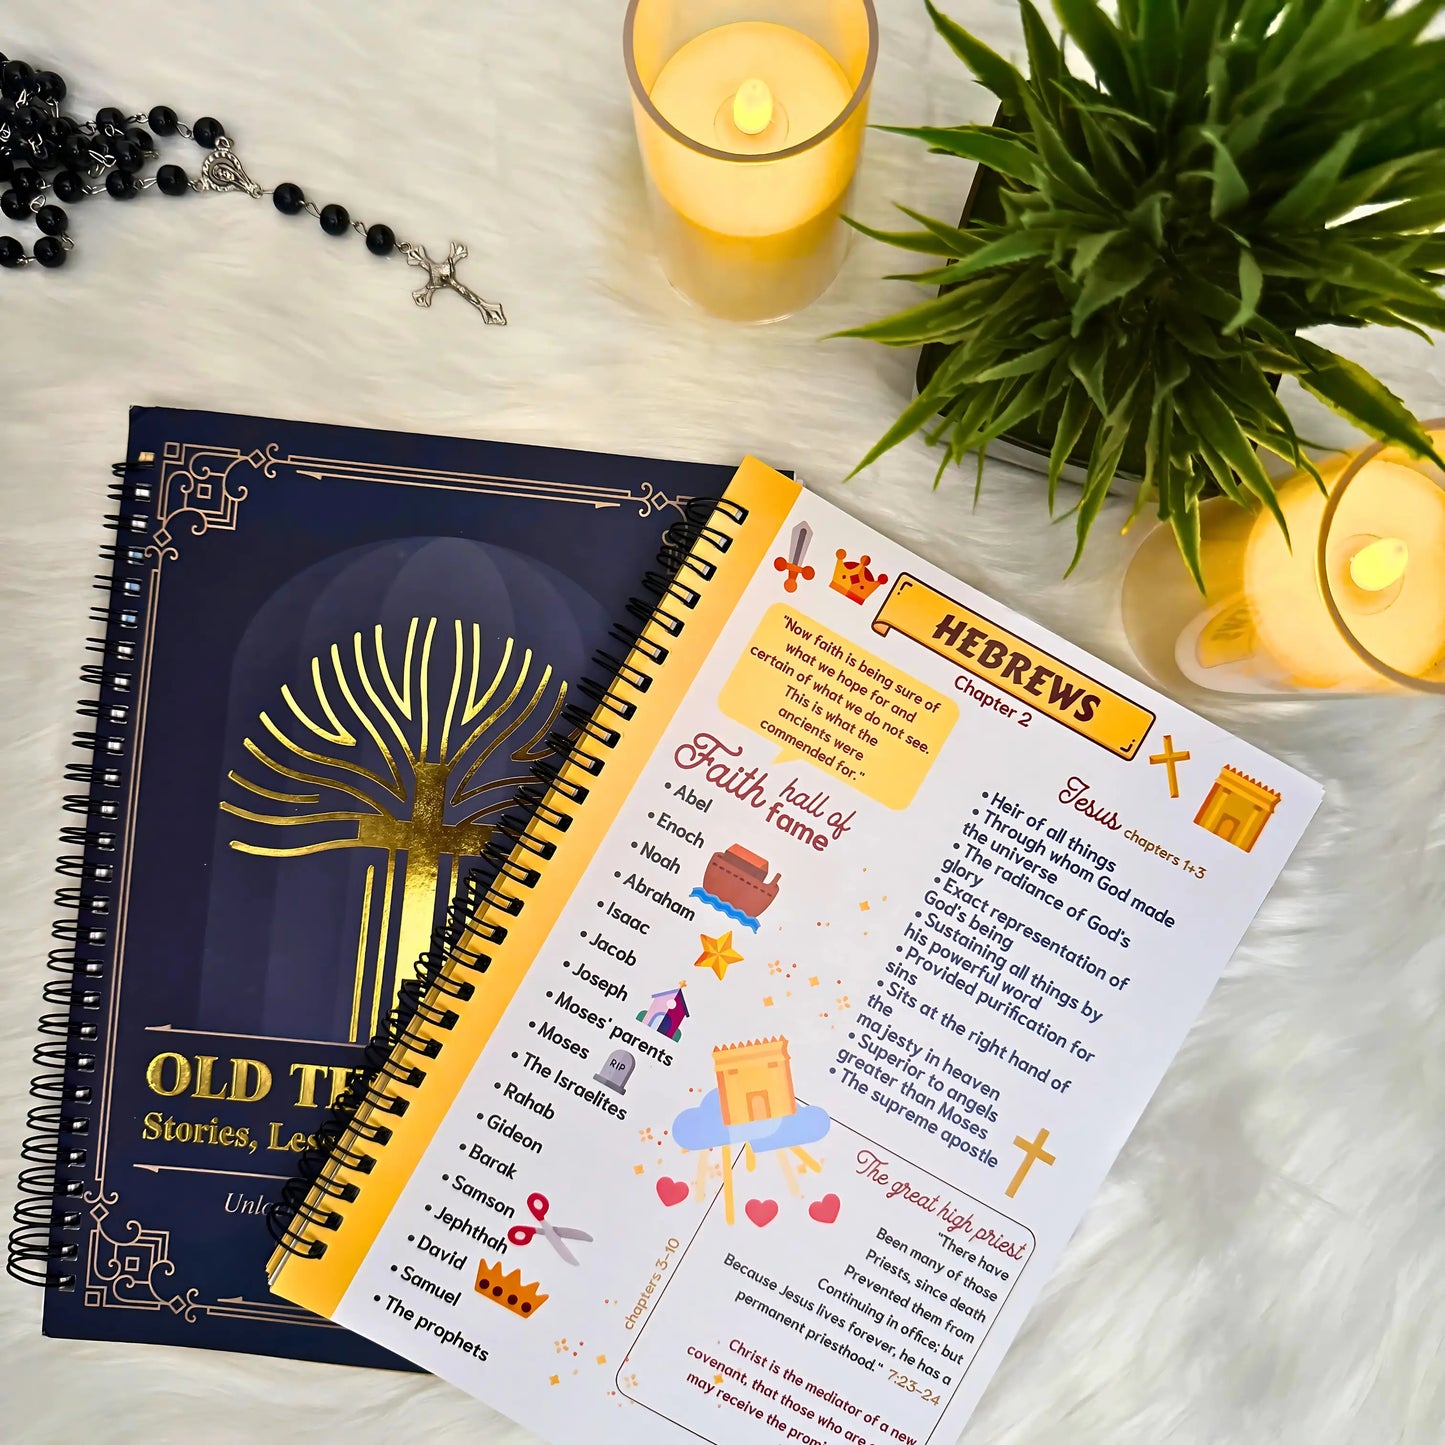 OLD TE
Stories, Les
HEBREWS
Chapter 2
"Now faith is being sure of
what we hope for and
certain of what we do not see.
This is what the
ancients were
commended for."
Faith hall of
fame
• Abel
• Enoch
• Noah
• Abraham
• Isaac
• Jacob
• Joseph
• Moses' parents
• Moses
RIP
• The Israelites
• Rahab
• Gideon
• Barak
• Samson
• Jephthah
• David
• Samuel
• The prophets
Jesus chapters 1+3
• Heir of all things
• Through whom God made
the universe
• The radiance of God's
glory
• Exact representation of
God's being
• Sustaining all things by
his powerful word
• Provided purification for
sins
• Sits at the right hand of
the
majesty in heaven
• Superior to angels
greater than Moses
• The supreme apostle
chapters 3-10
The great high priest
"There have
Been many of those
Priests, since death
Prevented them from
Continuing in office; but
Because Jesus lives forever, he has a
permanent priesthood." 7:23-24
Christ is the mediator of a new
covenant, that those who are
may receive the